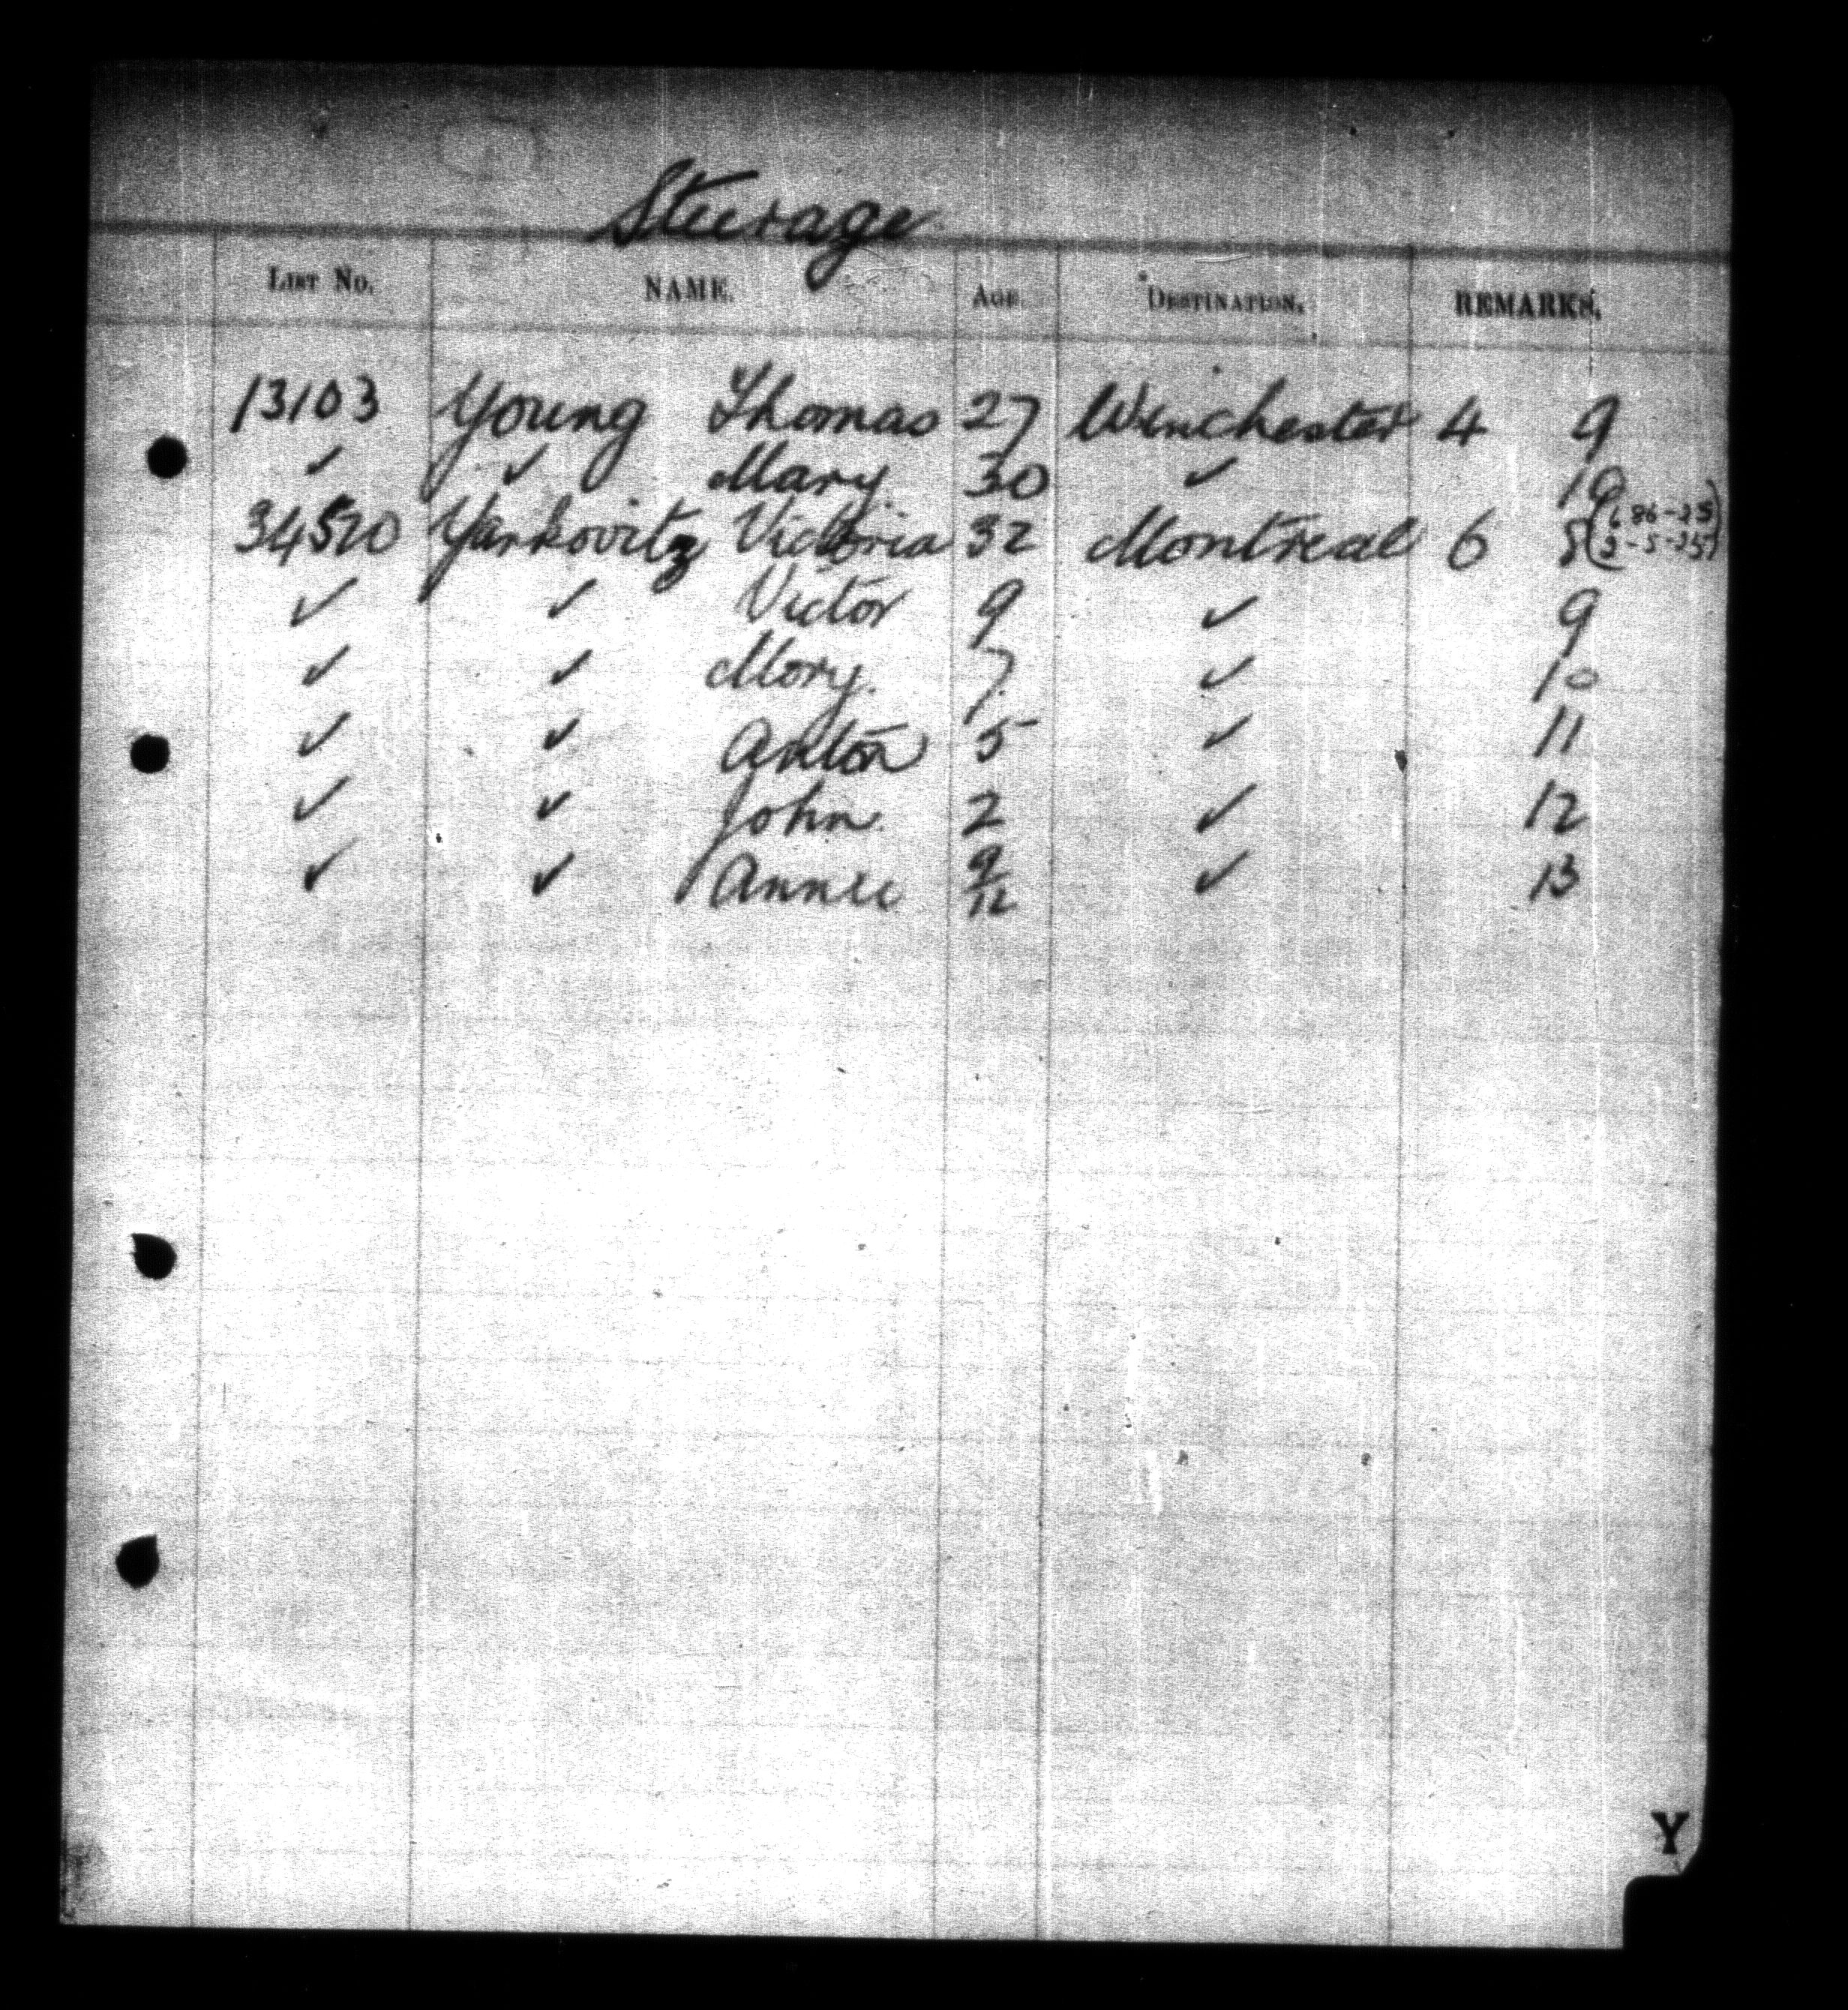 Steerage
LIST NO. NAME. AGE. DESTINATION. REMARKS.
13103 Young Thomas 27 Winchester 4 9
✓ ✓ Mary 30 ✓ 10
34570 Yankovitz Victoria 32 Montreal 6 8
✓ ✓ Victor 9 ✓ 9
✓ ✓ Mory 7 ✓ 10
✓ ✓ Anton 5 ✓ 11
✓ ✓ John 2 ✓ 12
✓ ✓ Annie 9/12 ✓ 13
Y